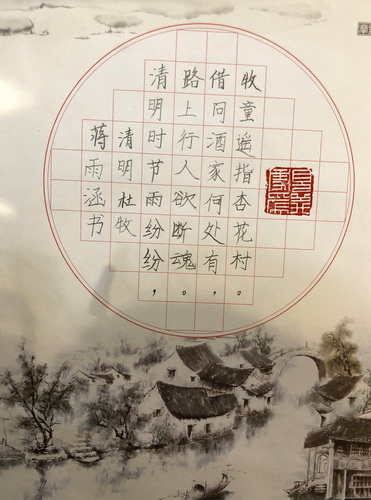 蒋雨涵书
清明杜牧
清明时节雨纷纷，
路上行人欲断魂。
借问酒家何处有，
牧童遥指杏花村。